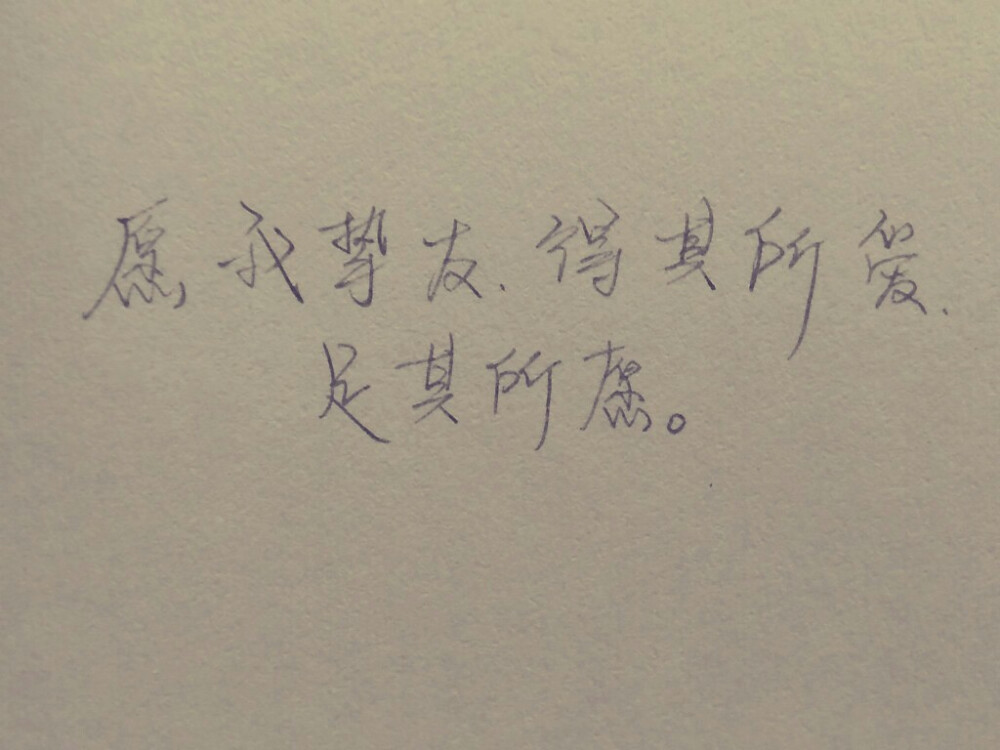 愿我挚友.得其所爱.
足其所愿。